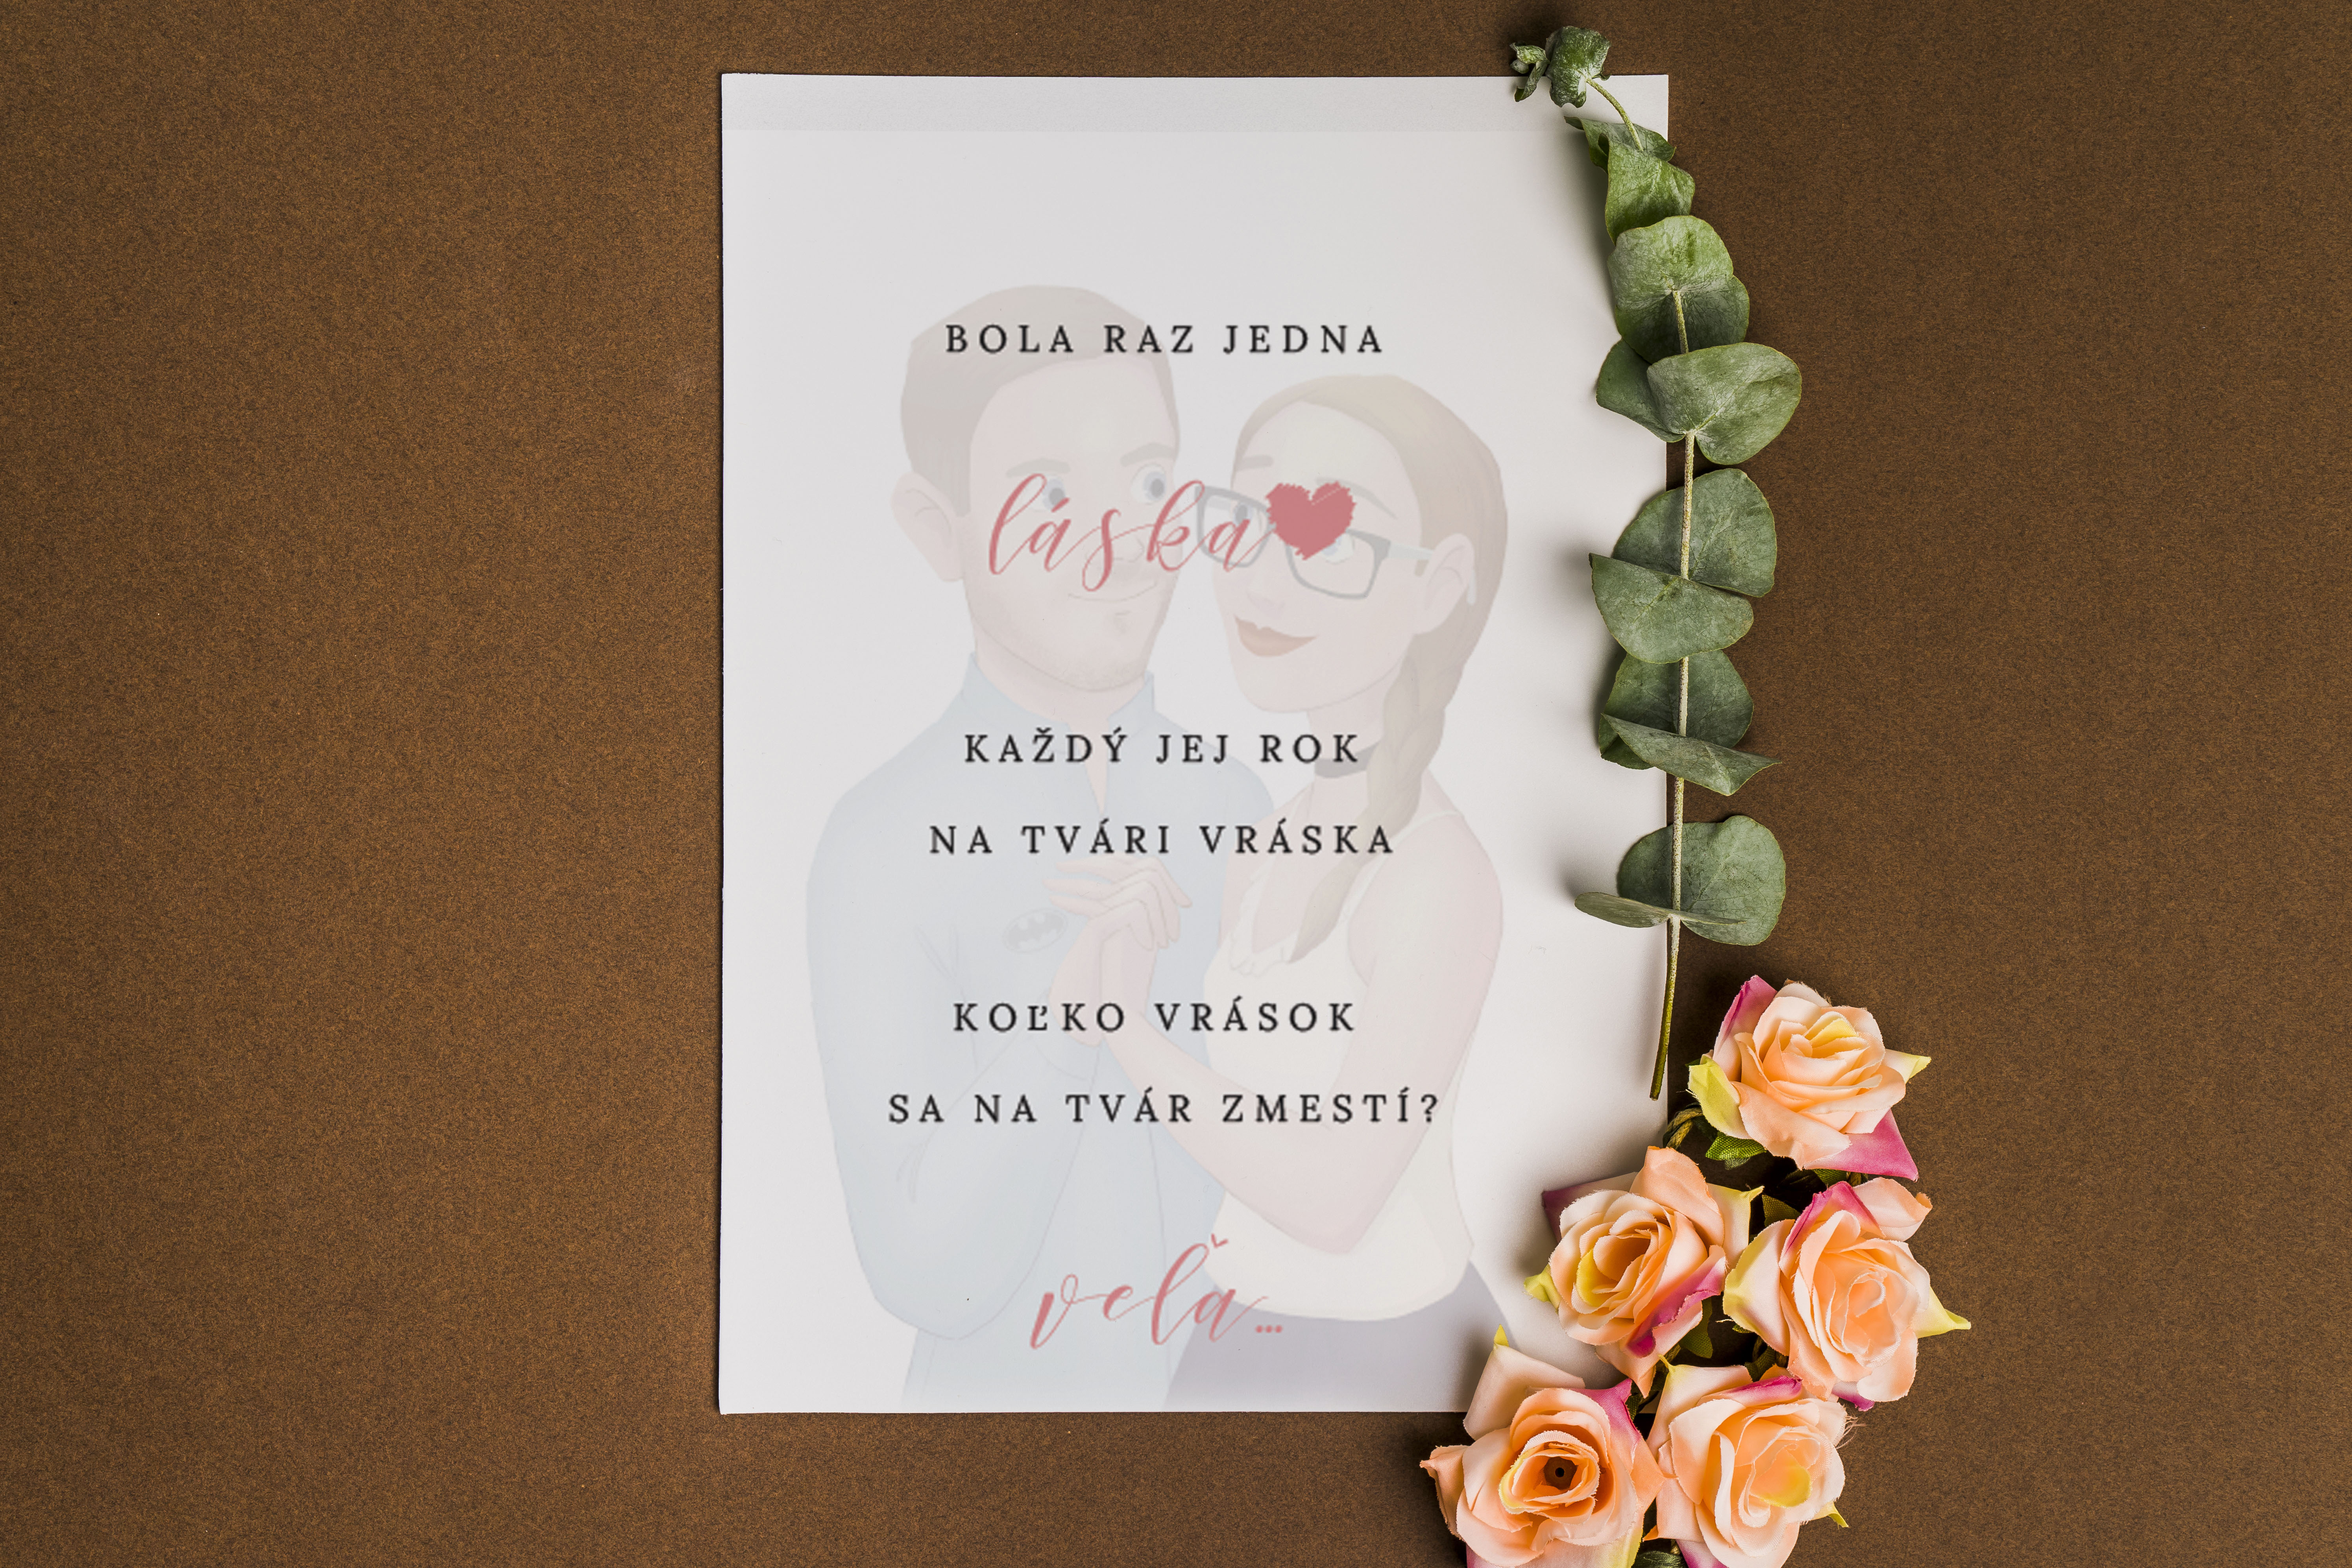 BOLA RAZ JEDNA
láska
KAŽDÝ JEJ ROK
NA TVÁRI VRÁSKA
KOĽKO VRÁSOK
SA NA TVÁR ZMESTÍ?
veľa...